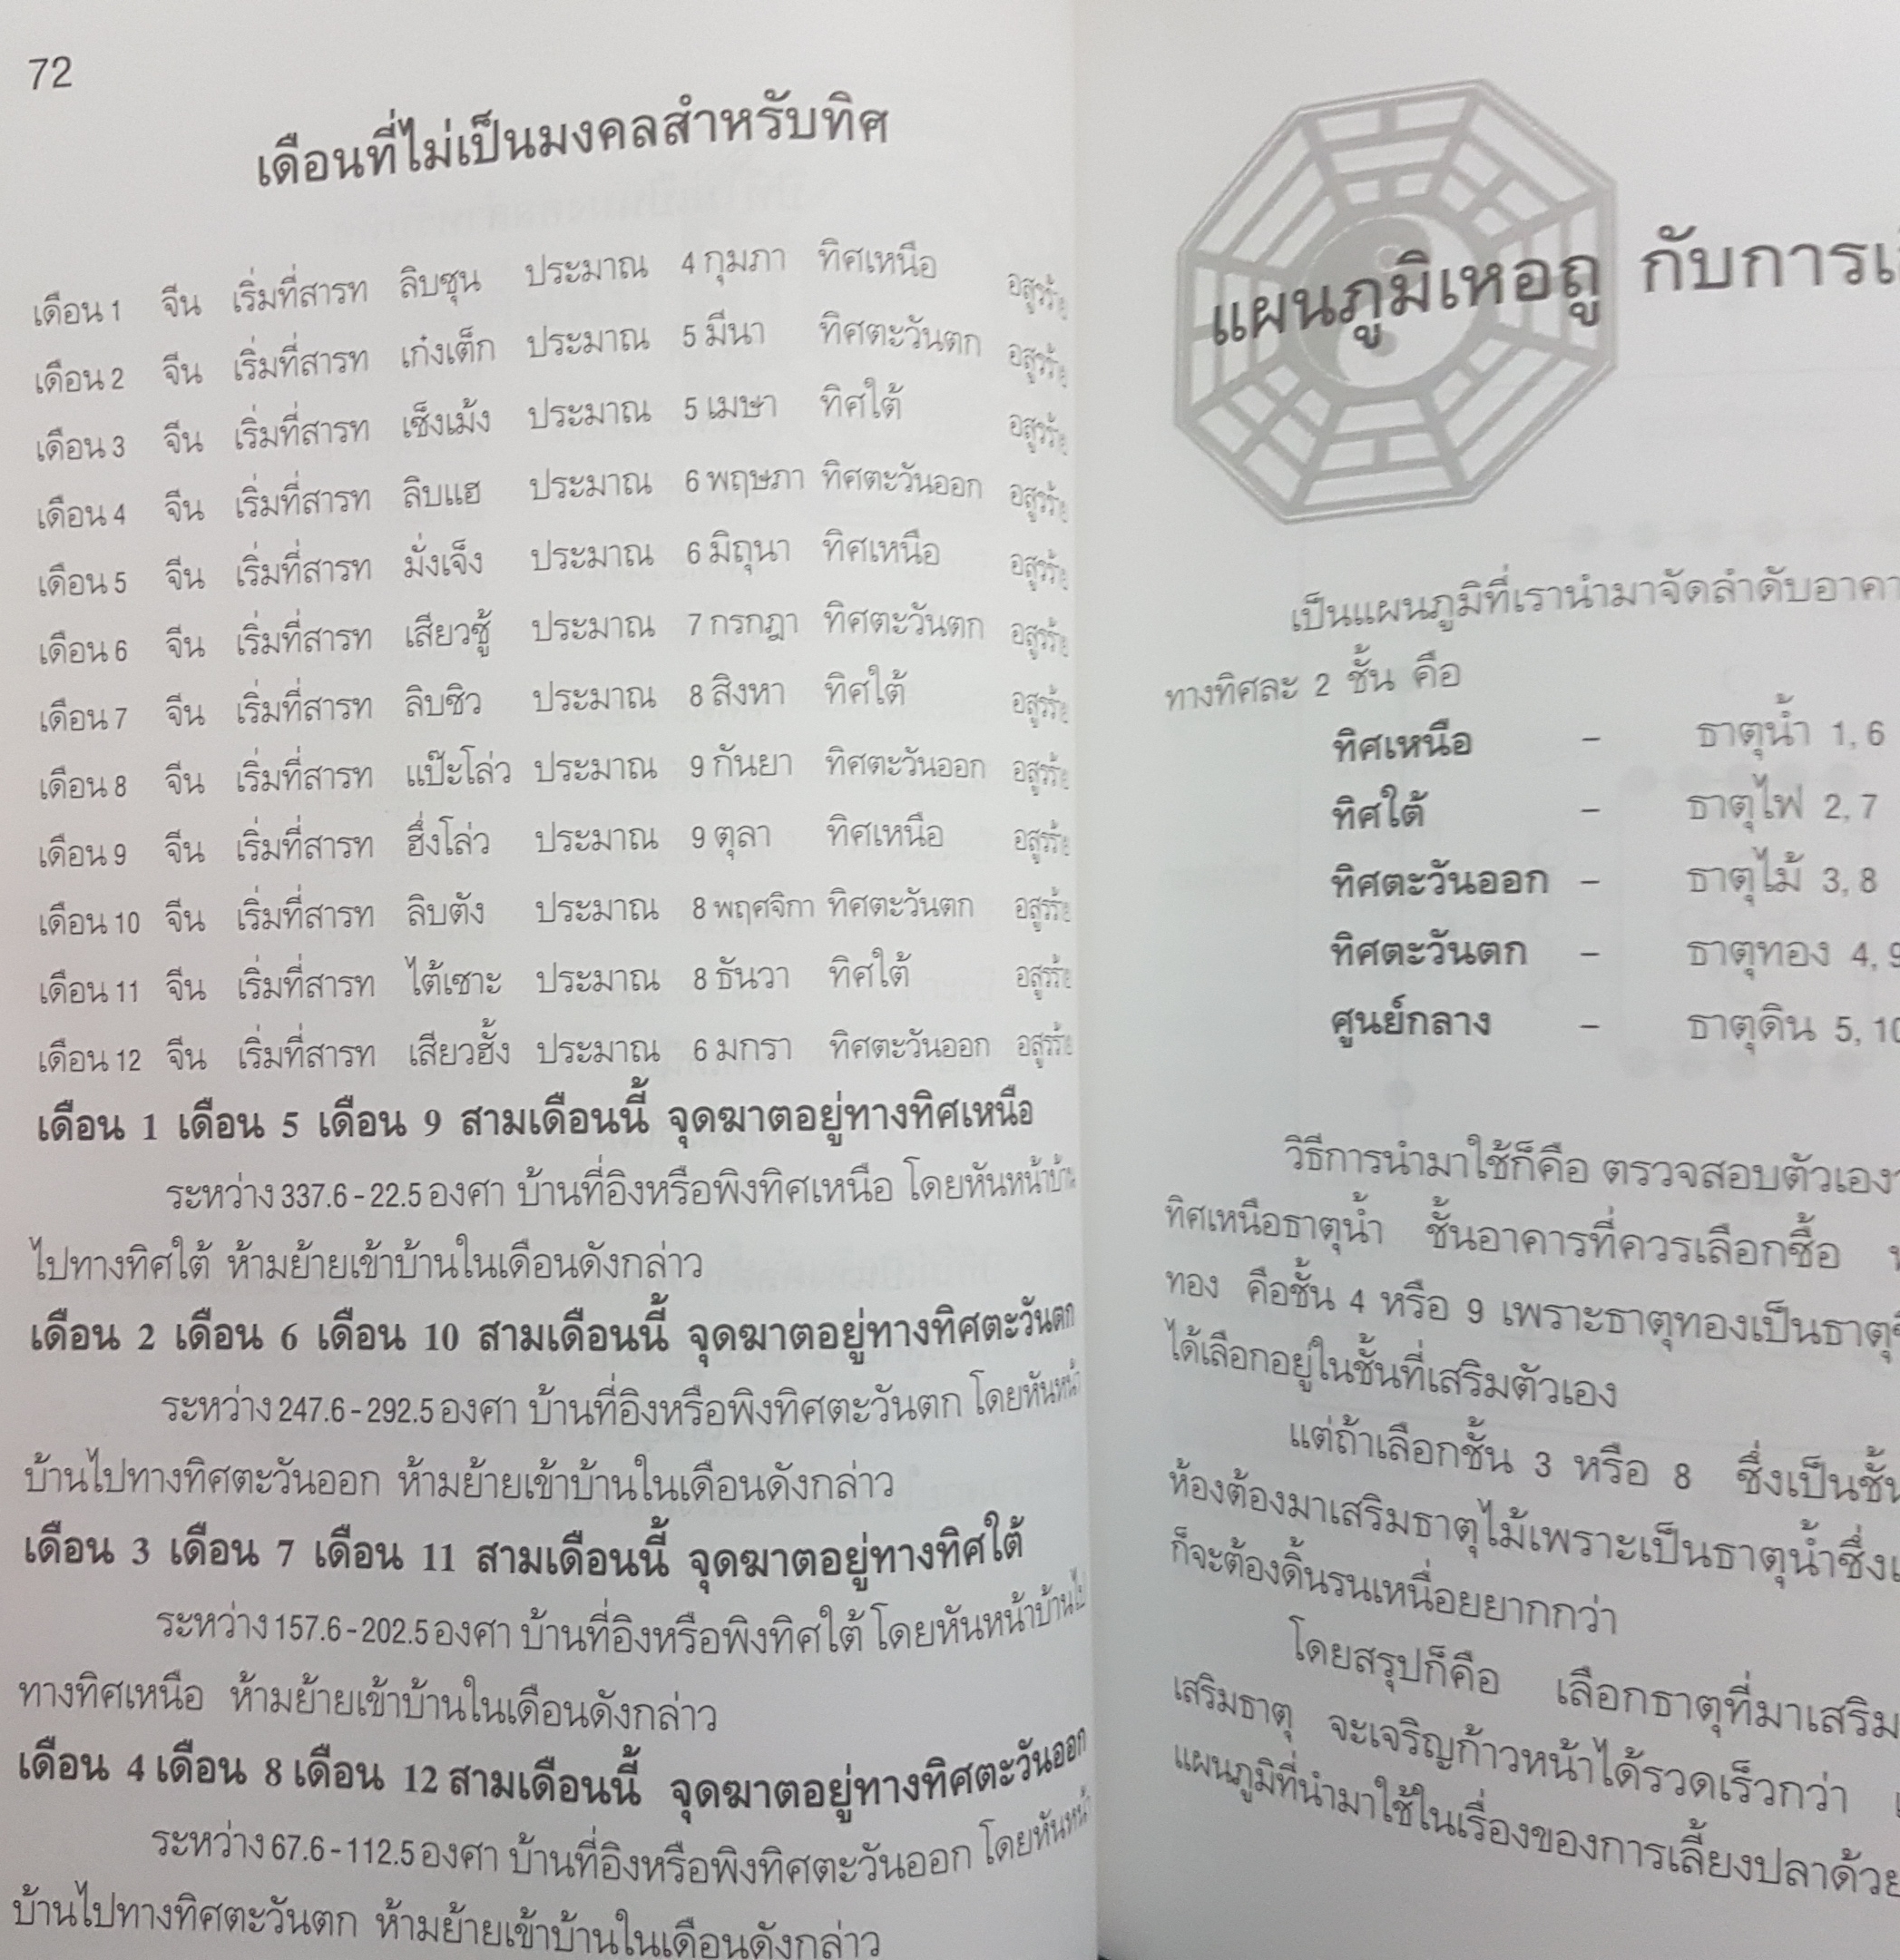 72
เดือนที่ไม่เป็นมงคลสำหรับทิศ
เดือน 1 จีน เริ่มที่สารท ลิบชุน ประมาณ 4 กุมภา ทิศเหนือ
เดือน 2 จีน เริ่มที่สารท เก๋งเต็ก ประมาณ 5 มีนา ทิศตะวันตก
เดือน 3 จีน เริ่มที่สารท เช็งเม้ง ประมาณ 5 เมษา ทิศใต้
เดือน 4 จีน เริ่มที่สารท ลิบแฮ ประมาณ 6 พฤษภา ทิศตะวันออก
เดือน 5 จีน เริ่มที่สารท มั่งเจ็ง ประมาณ 6 มิถุนา ทิศเหนือ
เดือน 6 จีน เริ่มที่สารท เสียวชู้ ประมาณ 7 กรกฎา ทิศตะวันตก
เดือน 7 จีน เริ่มที่สารท ลิบชิว ประมาณ 8 สิงหา ทิศใต้
เดือน 8 จีน เริ่มที่สารท แป๊ะโล่ว ประมาณ 9 กันยา ทิศตะวันออก
เดือน 9 จีน เริ่มที่สารท ฮึ่งโล่ว ประมาณ 9 ตุลา ทิศเหนือ
เดือน 10 จีน เริ่มที่สารท ลิบตัง ประมาณ 8 พฤศจิกา ทิศตะวันตก
เดือน 11 จีน เริ่มที่สารท ไต้เซาะ ประมาณ 8 ธันวา ทิศใต้
เดือน 12 จีน เริ่มที่สารท เสียวฮั้ง ประมาณ 6 มกรา ทิศตะวันออก
เดือน 1 เดือน 5 เดือน 9 สามเดือนนี้ จุดฆาตอยู่ทางทิศเหนือ
ระหว่าง 337.6 - 22.5 องศา บ้านที่อิงหรือพิงทิศเหนือ โดยหันหน้าบ้าน
ไปทางทิศใต้ ห้ามย้ายเข้าบ้านในเดือนดังกล่าว
เดือน 2 เดือน 6 เดือน 10 สามเดือนนี้ จุดฆาตอยู่ทางทิศตะวันตก
ระหว่าง 247.6 - 292.5 องศา บ้านที่อิงหรือพิงทิศตะวันตก โดยหันหน้า
บ้านไปทางทิศตะวันออก ห้ามย้ายเข้าบ้านในเดือนดังกล่าว
เดือน 3 เดือน 7 เดือน 11 สามเดือนนี้ จุดฆาตอยู่ทางทิศใต้
ระหว่าง 157.6 - 202.5 องศา บ้านที่อิงหรือพิงทิศใต้ โดยหันหน้าบ้านไป
ทางทิศเหนือ ห้ามย้ายเข้าบ้านในเดือนดังกล่าว
เดือน 4 เดือน 8 เดือน 12 สามเดือนนี้ จุดฆาตอยู่ทางทิศตะวันออก
ระหว่าง 67.6 - 112.5 องศา บ้านที่อิงหรือพิงทิศตะวันออก โดยหันหน้า
บ้านไปทางทิศตะวันตก ห้ามย้ายเข้าบ้านในเดือนดังกล่าว
แผนภูมิเหอถู กับการ
เป็นแผนภูมิที่เรานำมาจัดลำดับอาคา
ทางทิศละ 2 ชั้น คือ
ทิศเหนือ – ธาตุน้ำ 1, 6
ทิศใต้ – ธาตุไฟ 2, 7
ทิศตะวันออก – ธาตุไม้ 3, 8
ทิศตะวันตก – ธาตุทอง 4, 9
ศูนย์กลาง – ธาตุดิน 5, 10
วิธีการนำมาใช้ก็คือ ตรวจสอบตัวเอง
ทิศเหนือธาตุน้ำ ชั้นอาคารที่ควรเลือกซื้อ
ทอง คือชั้น 4 หรือ 9 เพราะธาตุทองเป็นธาตุ
ได้เลือกอยู่ในชั้นที่เสริมตัวเอง
แต่ถ้าเลือกชั้น 3 หรือ 8 ซึ่งเป็นชั้น
ห้องต้องมาเสริมธาตุไม้เพราะเป็นธาตุน้ำซึ่ง
ก็จะต้องดิ้นรนเหนื่อยยากกว่า
โดยสรุปก็คือ เลือกธาตุที่มาเสริม
เสริมธาตุ จะเจริญก้าวหน้าได้รวดเร็วกว่า
แผนภูมิที่นำมาใช้ในเรื่องของการเลี้ยงปลาด้วย